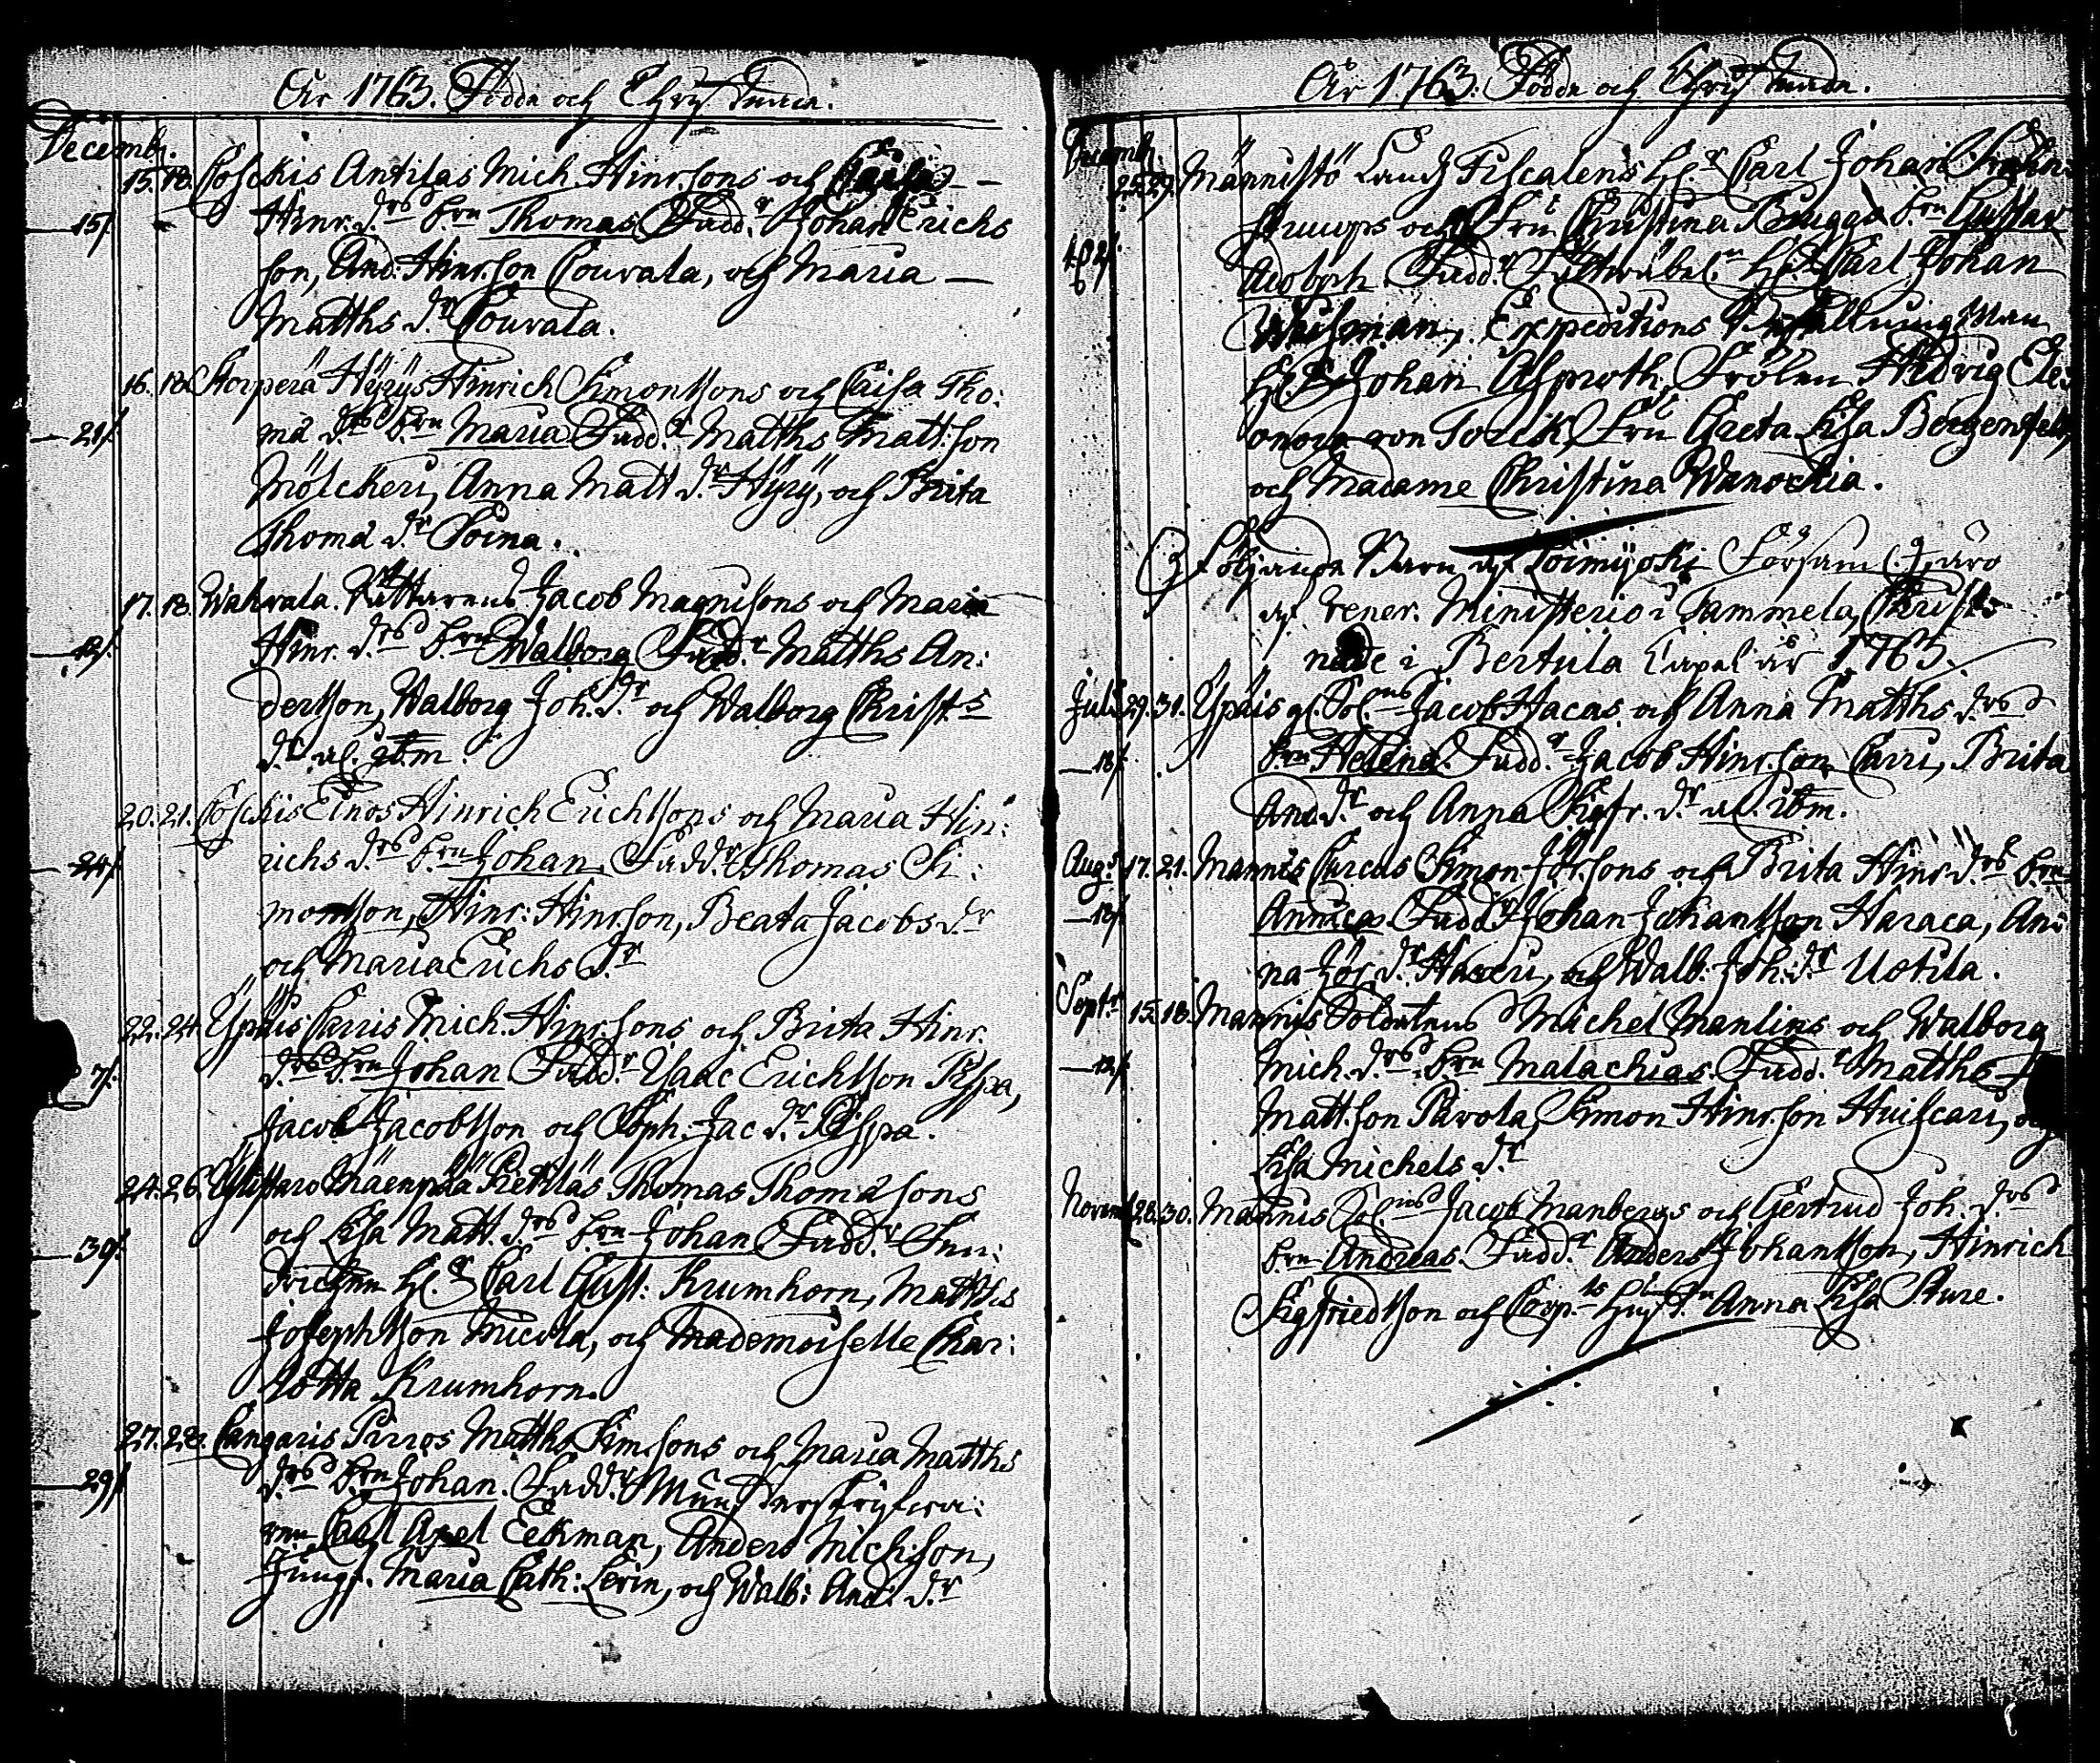 År 1763. Födda och Christnade.
Decemb.
15. 18. Koskis Antilas Mich. Hinr.sons och Caisa
15/. Hinr. drs b.rn Thomas Fadd.r Johan Erichs
son, And: Hinr.son Couvala, och Maria
Matths d.r Couvala.
16. 18. Horperä Hyrys Hinrich Simonssons och Caisa Tho:
21/. mä d.rs b.rn Maria Fadd.r Matths Matt:son
Mölckeri, Anna Matt d.r Hyry, och Brita
Thomä d.r Soina.
17. 18. Wahvala Jacob Magnusons och Maria
Hinr. d.rs b.rn Walborg Fadd.r Matths An:
dersson, Walborg Joh. d.r och Walborg Christ.s
d.r al. ibm.
20. 21. Koskis Einos Hinrich Erichssons och Maria Hin:
24/. richs d.rs b.rn Johan Fadd.r Thomas Si:
monsson, Hinr: Hinr.son, Beata Jacobs d.r
och Maria Erichs d.r
22. 24. Ypäis Carris Mich. Hinr.sons och Brita Hinr.
7/. d.rs b.rn Johan Fadd.r Isaac Erichsson
Jacob Jacobsson och Soph. Jac d.r
24. 26. Mäenpää Thomas Thomä sons
30/. och Lisa Matt. d.rs b.rn Johan Fadd.r Fen:
drichen H.r Carl Gust: Krumhorn, Matths
Josephsson Micola, och Mademoiselle Char:
lotta Krumhorn.
27. 28. Cangaris Pirros Matths Sim.sons och Maria Matths
29/. d.rs b.rn Johan. Fadd.r Mönsterskrifwa:
ren Carl Axel Eekman, Anders Mich:son,
Jungf. Maria Cath: Levin, och Walb: And: d.r
År 1763. Födda och Christnade.
Decemb.
25. 27. Männistö Landz Fiscalens H.r Carl Johan
och Fru Christina Brugge b.rn Gustav
Adolph Fadd.r Fältwäbel.n H.r Carl Johan
Weisman, Expeditions Befallningz Man
H.r Johan Alfproth, Frölen Hedvig Ele:
onora von Torck, Fru Greta Lisa Bergenfelt,
och Madame Christina Wanochia.
Följande Barn af Loimijoki Församl. äro
af Vener. Ministerio i Tammela, Christ
nade i Bertula Capel år 1763.
Julii 29. 31. Ypäis gl. Sol.ns Jacob Hacas och Anna Matths d.rs
18/. b.rn Helena. Fadd.r Jacob Hinr.son Carri, Brita
And. d.r och Anna Sigfr. d.r al. ibm.
Aug. 17. 21. Mannis Curcas Simon Jör.sons och Brita Hinr d.rs b.rn
18/. Annica Fadd.r Johan Johansson Haraca, An:
na Jör. d.r Haveri, och Walb. Joh. d.r Uotila.
Sept.r 15. 18. Mannis Soldatens Michel Manlins och Walborg
12/. Mich. d.rs b.rn Malachias Fadd.r Matths
Matt.son Parola, Simon Hinr.son Huiscari, och
Lisa Michels d.r
Novemb. 28. 30. Mannis Sol.ns Jacob Manbergs och Gertrud Joh. d.rs
b.rn Andreas. Fadd.r Anders Johansson, Hinrich
Sigfriedsson och Corp.ls Hust.n Anna Lisa Sture.